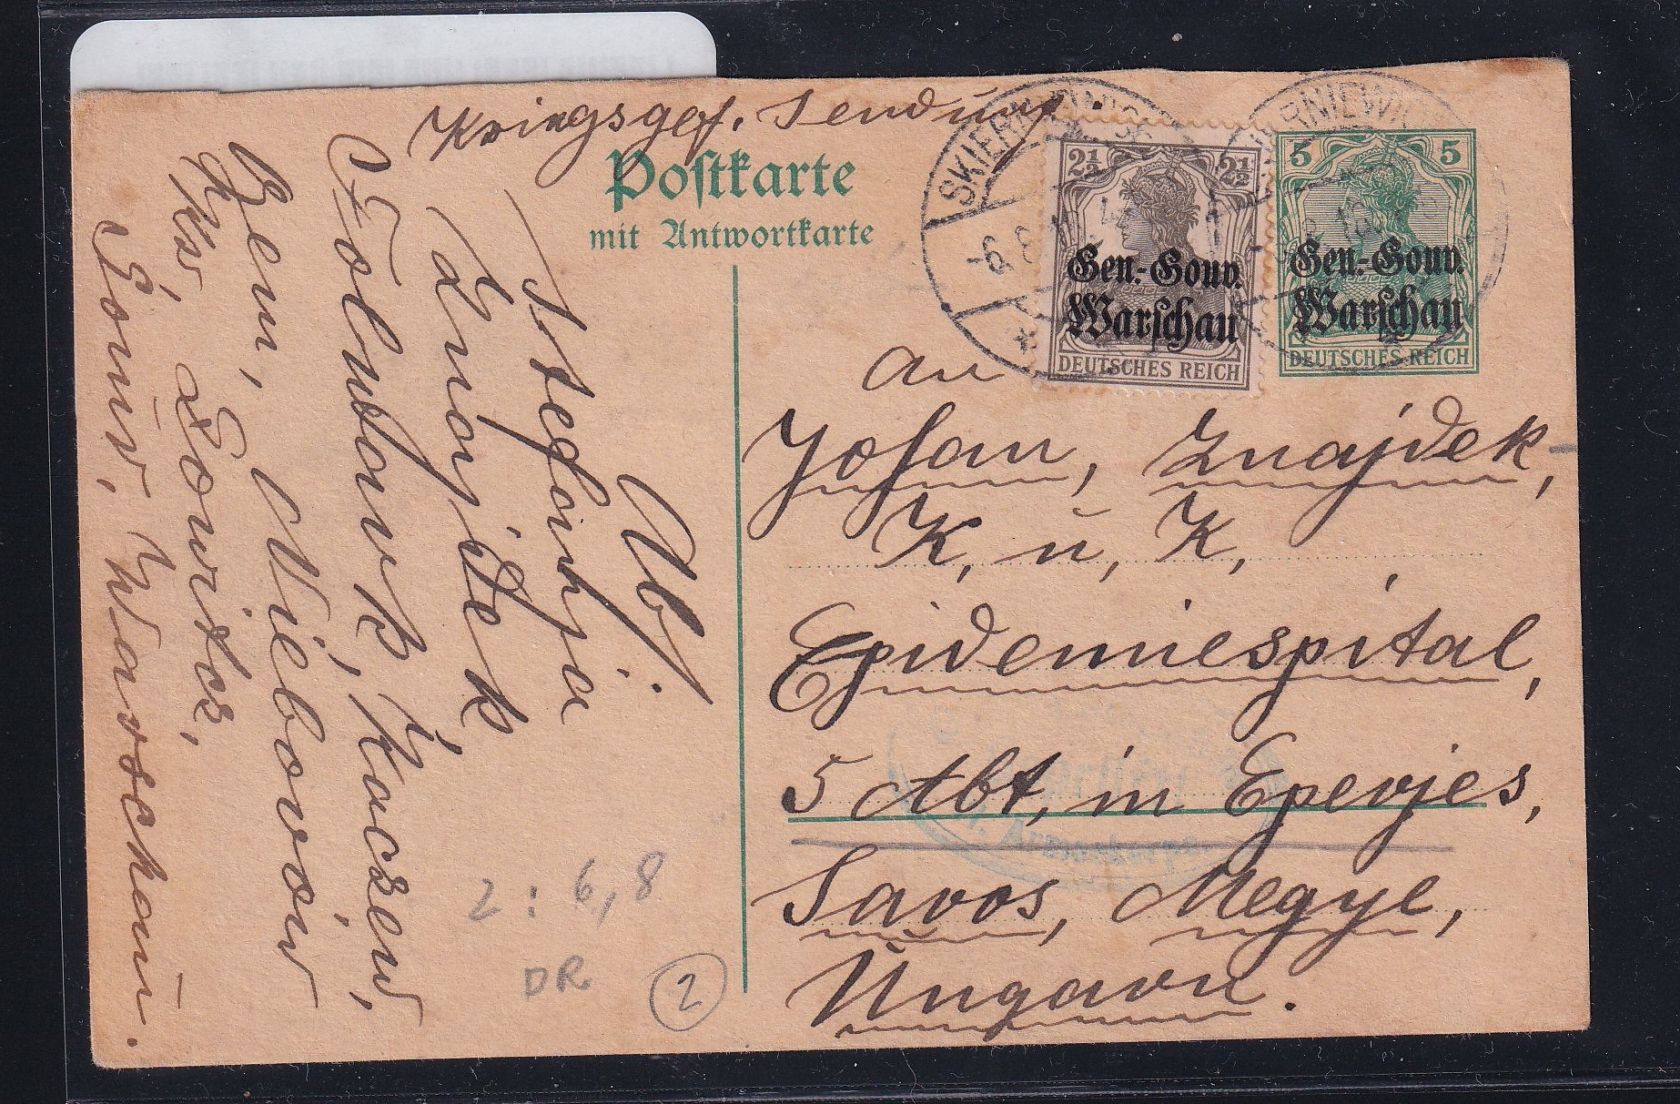 Kriegsgef. Sendung.
Postkarte
mit Antwortkarte
SKIERNIEWICE
-6.8.
2½ 2½
Gen.-Gouv.
Warschau
DEUTSCHES REICH
5 5
Gen.-Gouv.
Warschau
DEUTSCHES REICH
an
Johan, Znajdek,
K, u, K,
Epidemiespital,
5 Abt, in Eperjes,
Savos, Megye,
Ungarn.
Armeekorps
Abs.
Stefanja
Znajdek,
Folwark, Kaczew,
Gem, Nieborów
Krs, Lowitsz,
Gouw, Warschau.
2 : 6,8
DR
2